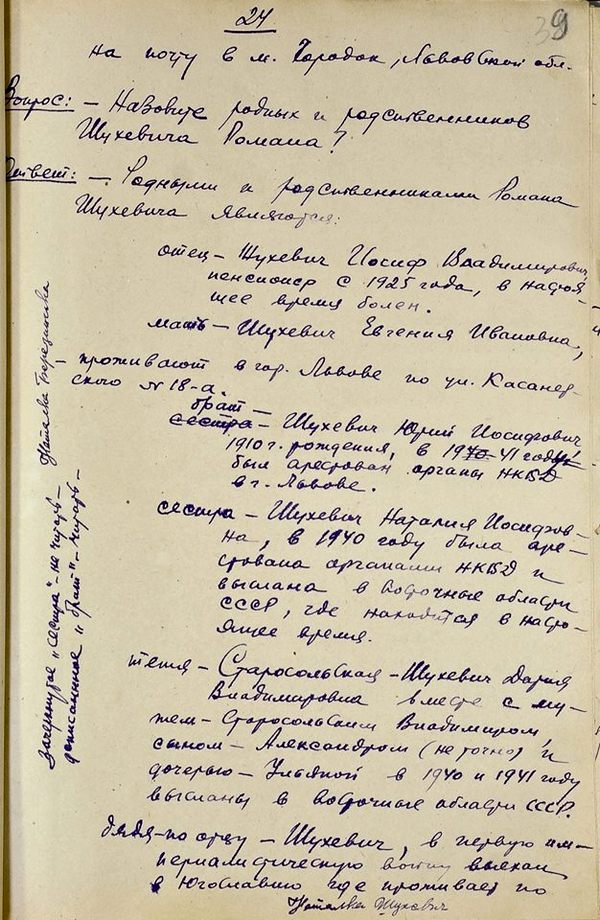 24
39
на почту в м. Городок, Львовской обл.
Вопрос: – Назовите родных и родственников
Шухевича Романа?
Ответ: – Родными и родственниками Романа
Шухевича являются:
отец – Шухевич Иосиф Владимирович,
пенсионер с 1925 года, в настоя-
щее время болен.
мать – Шухевич Евгения Ивановна,
проживают в гор. Львове по ул.
ского № 18-а.
брат –
сестра – Шухевич Юрий Иосифович
1910 г. рождения, в 1940-41 году
был арестован органы НКВД
в г. Львове.
сестра – Шухевич Наталия Иосифов-
на, в 1940 году была аре-
стована органами НКВД и
выслана в восточные области
СССР, где находится в насто-
ящее время.
тетя – Старосольская-Шухевич Дария
Владимировна вместе с му-
жем – Старосольским Владимиром,
сыном – Александром (не точно) и
дочерью – Ульяной в 1940 и 1941 году
высланы в восточные области СССР.
дядя – по отцу – Шухевич, в первую им-
периалистическую войну выехал
в Югославию где проживает по
Наталка Шухевич
зачеркнутое "сестра" – не читать –
дописанное "брат" – читать –
Наталка Березинська